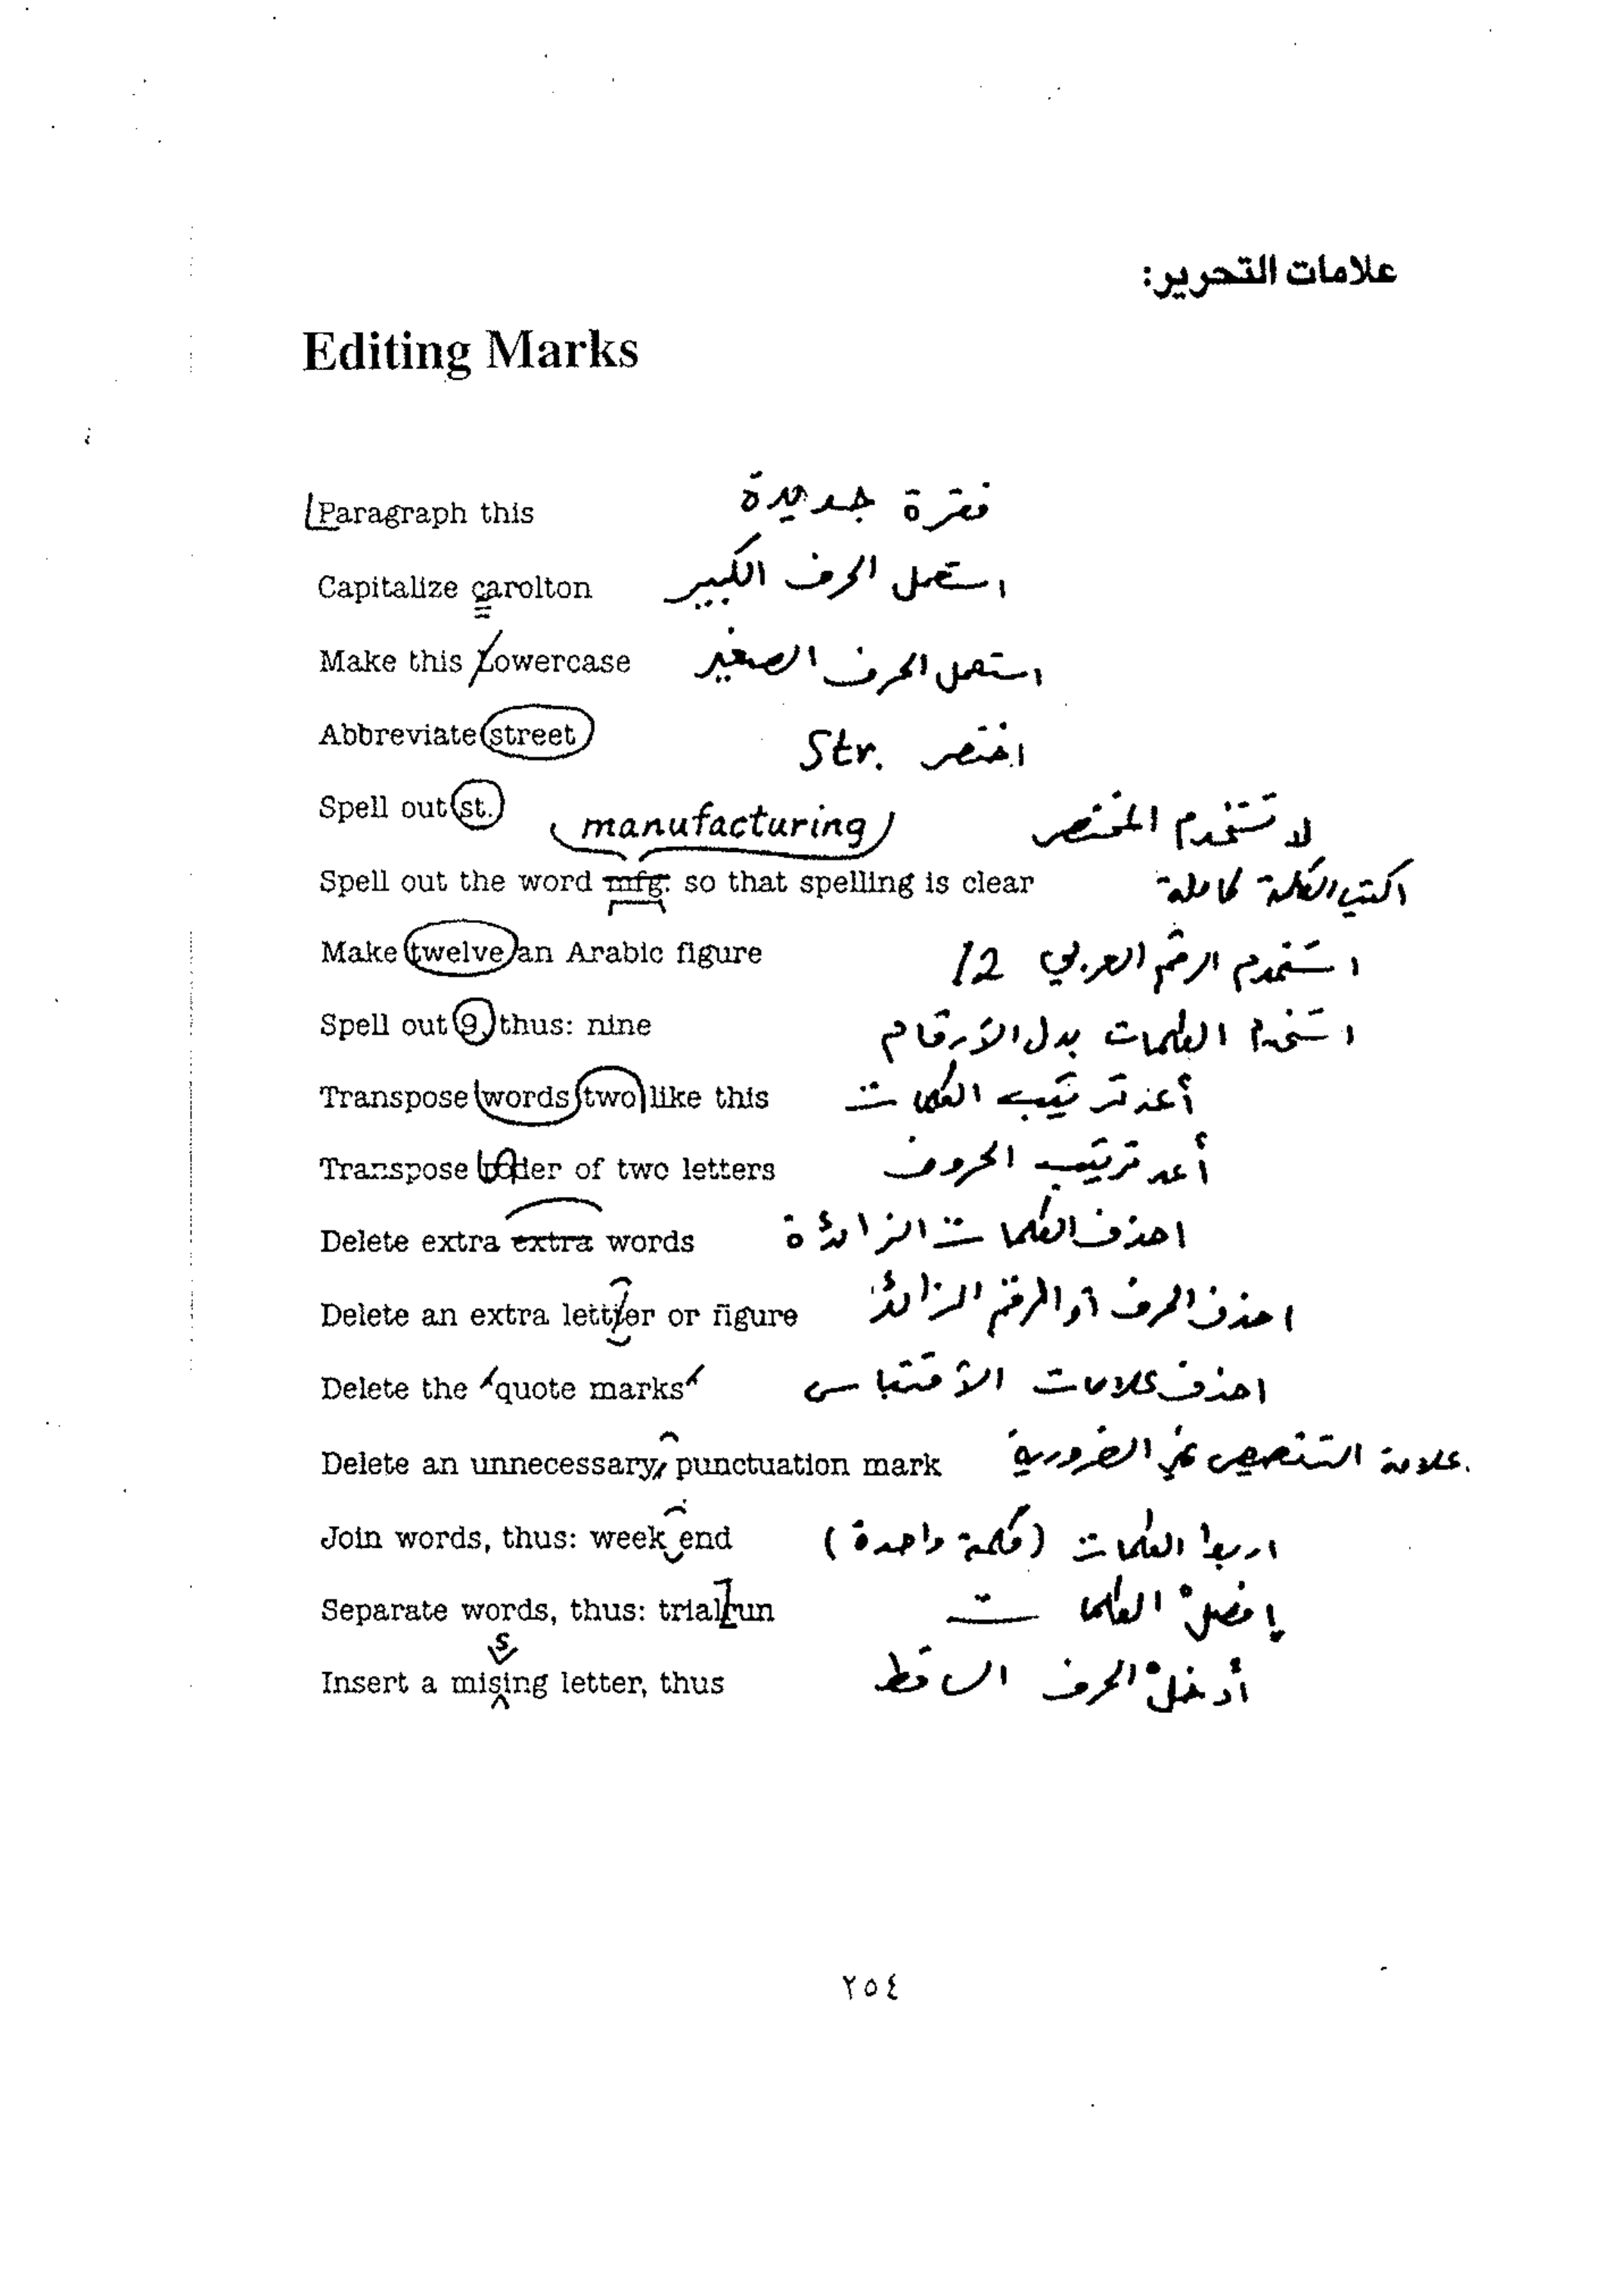 علامات التحرير:
Editing Marks
Paragraph this فقرة جديدة
Capitalize carolton استعمل الحرف الكبير
Make this Lowercase استعمل الحرف الصغير
Abbreviate street اختصر Str.
Spell out st. لا تستخدم المختصر
manufacturing
Spell out the word mfg. so that spelling is clear اكتب الكلمة كاملة
Make twelve an Arabic figure استخدم الرقم العربي 12
Spell out 9, thus: nine استخدم الكلمات بدل الأرقام
Transpose words two like this أعد ترتيب الكلمات
Transpose of two letters أعد ترتيب الحروف
Delete extra extra words احذف الكلمات الزائدة
Delete an extra lettter or figure احذف الحرف أو الرقم الزائد
Delete the "quote marks" احذف علامات الأقتباس
Delete an unnecessary, punctuation mark علامة التنصيص غير الضرورية
Join words, thus: week end اربط الكلمات (كلمة واحدة)
Separate words, thus: trialrun افصل الكلمات
s
Insert a mising letter, thus أدخل الحرف الساقط
٢٥٤